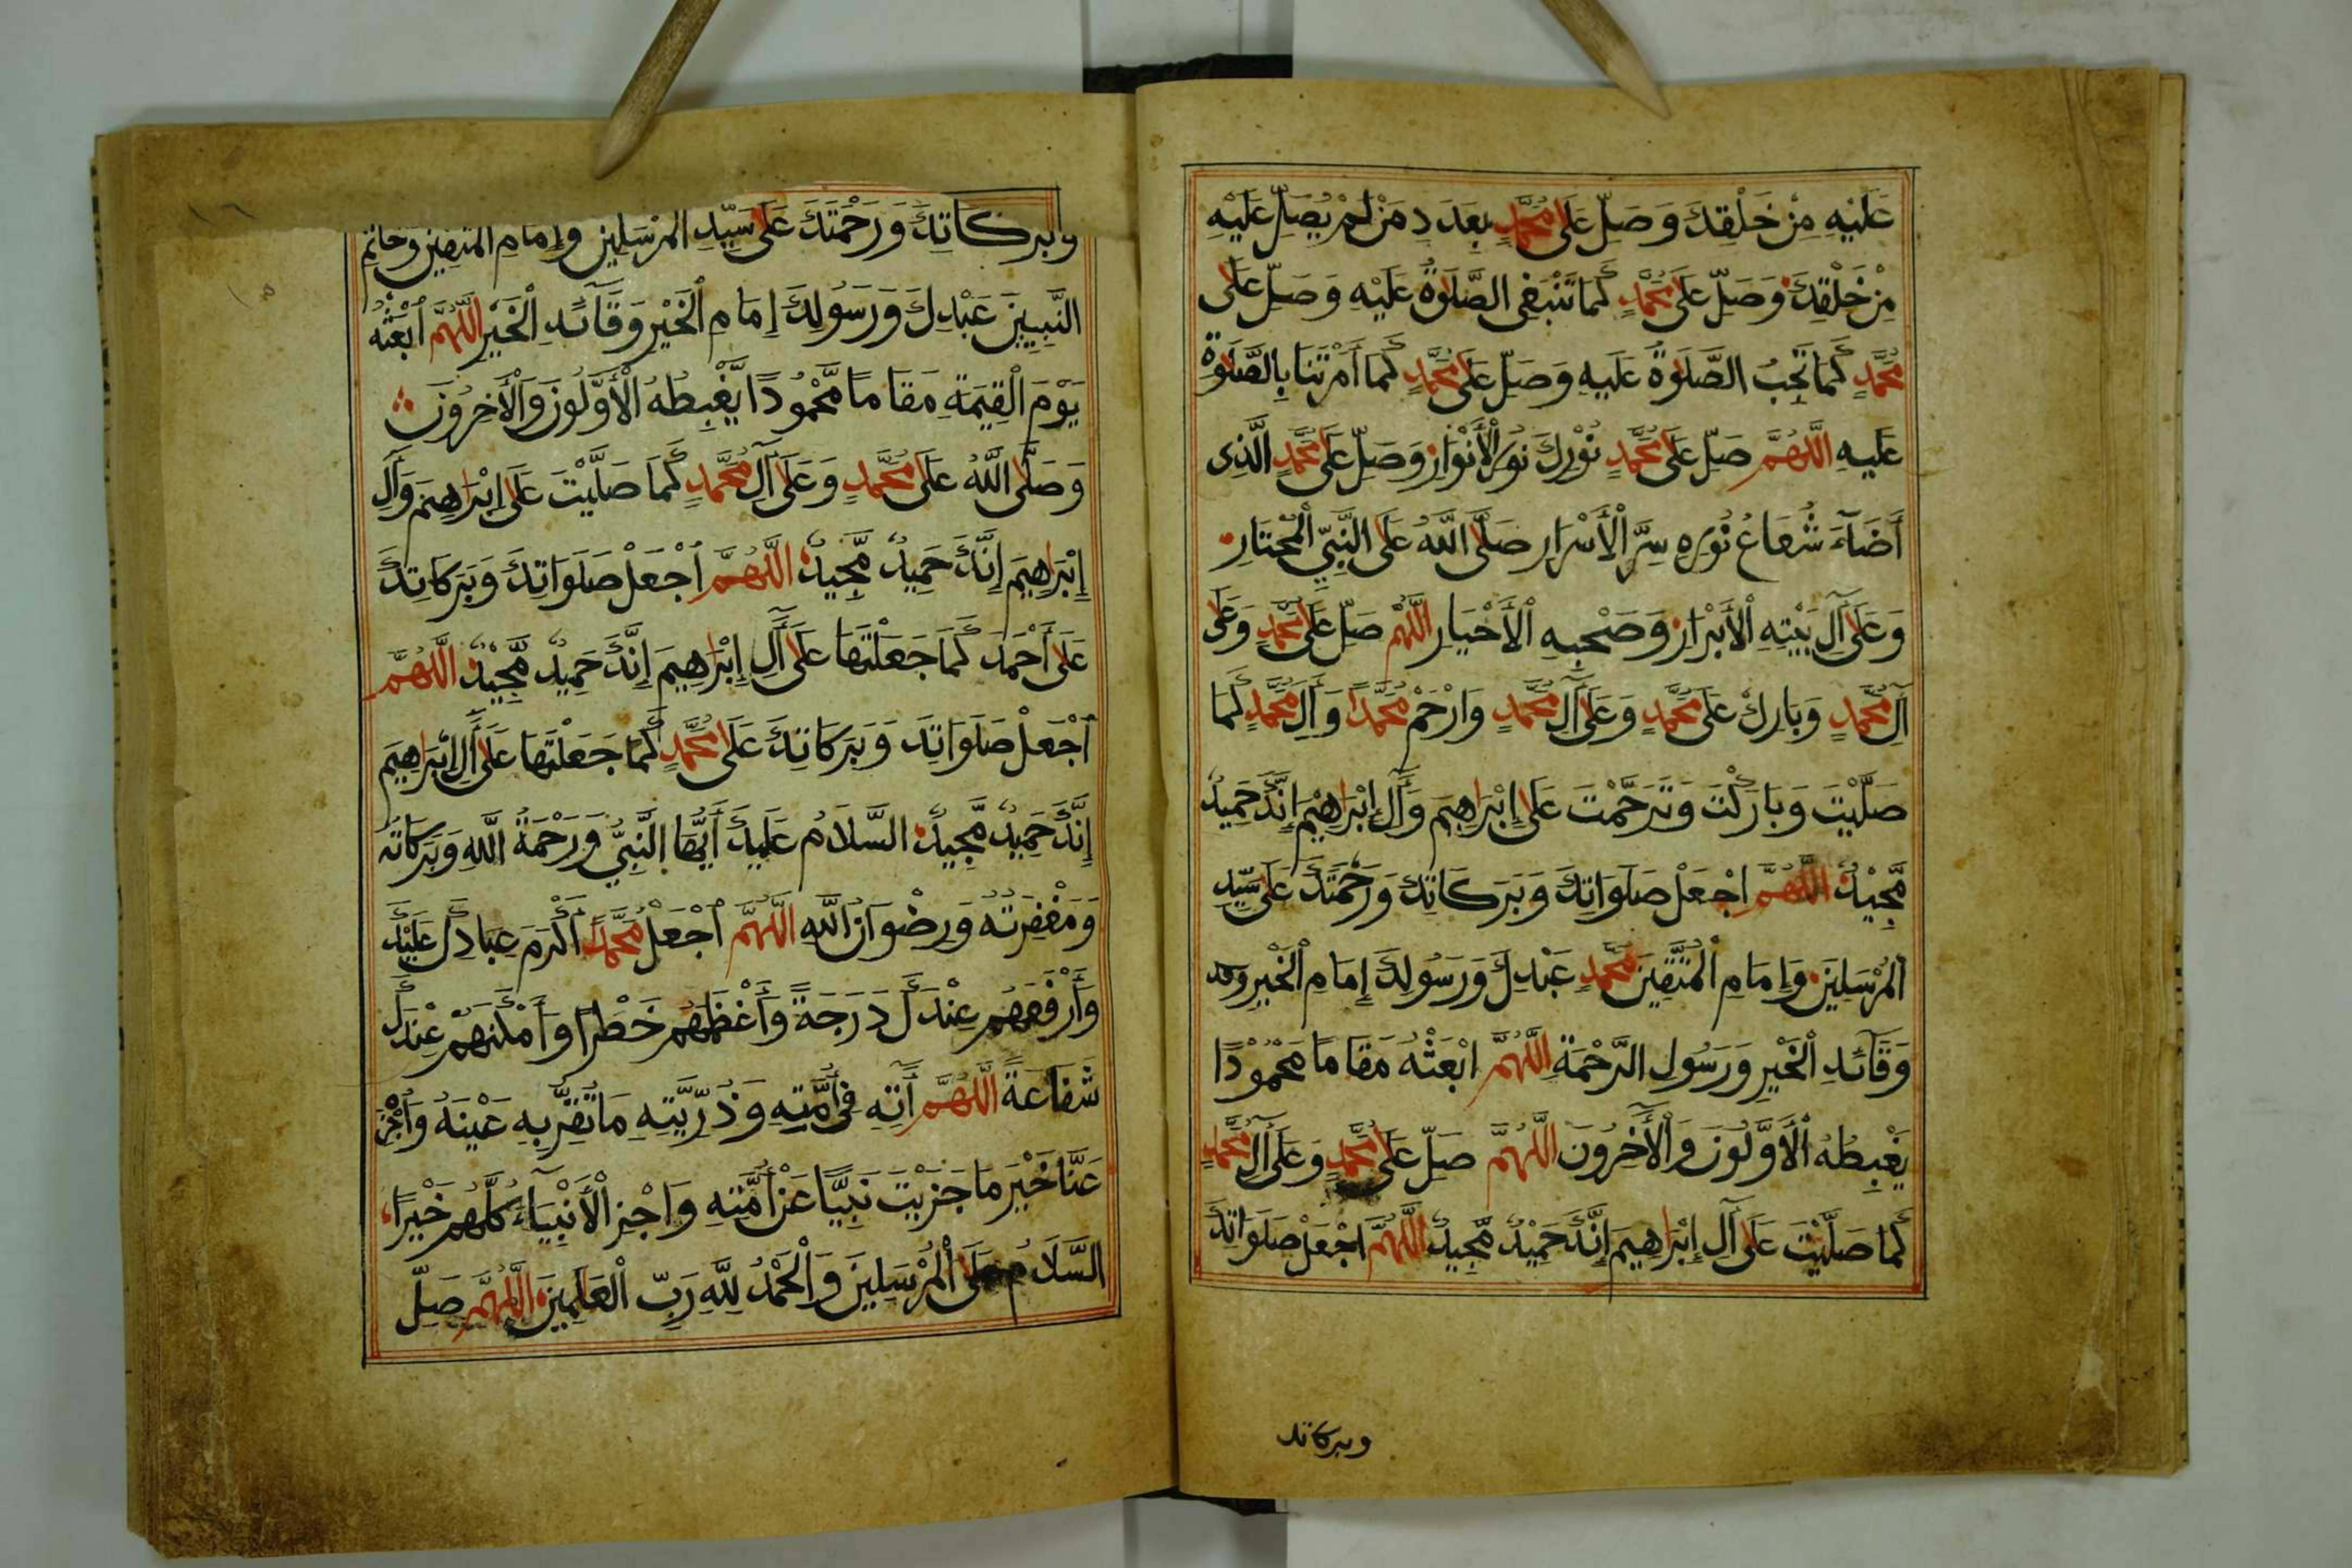 عَلَيْهِ مِنْ خَلْقِكَ وَصَلِّ عَلَى مُحَمَّدٍ بِعَدَدِ مَنْ لَمْ يُصَلِّ عَلَيْهِ
مِنْ خَلْقِكَ وَصَلِّ عَلَى مُحَمَّدٍ كَمَا تَنْبَغِى الصَّلَوةُ عَلَيْهِ وَصَلِّ عَلَى
مُحَمَّدٍ كَمَا تَجِبُ الصَّلَوةُ عَلَيْهِ وَصَلِّ عَلَى مُحَمَّدٍ كَمَا أَمَرْتَنَا بِالصَّلَوةِ
عَلَيْهِ اللَّهُمَّ صَلِّ عَلَى مُحَمَّدٍ نُوْرِكَ نُوْرِ الْأَنْوَارِ وَصَلِّ عَلَى مُحَمَّدٍ الَّذِى
أَضَآءَ شُعَاعُ نُوْرِهِ سِرَّ الْأَسْرَارِ صَلَّى اللَّهُ عَلَى النَّبِيِّ الْمُخْتَارِ
وَعَلَى آلِ بَيْتِهِ الْأَبْرَارِ وَصَحْبِهِ الْأَخْيَارِ اللَّهُمَّ صَلِّ عَلَى مُحَمَّدٍ وَعَلَى
آلِ مُحَمَّدٍ وَبَارِكْ عَلَى مُحَمَّدٍ وَعَلَى آلِ مُحَمَّدٍ وَارْحَمْ مُحَمَّدًا وَآلَ مُحَمَّدٍ كَمَا
صَلَّيْتَ وَبَارَكْتَ وَتَرَحَّمْتَ عَلَى إِبْرَاهِيمَ وَآلِ إِبْرَاهِيْمَ إِنَّكَ حَمِيدٌ
مَّجِيْدٌ اللَّهُمَّ اجْعَلْ صَلَوَاتِكَ وَبَرَكَاتِكَ وَرَحْمَتَكَ عَلَى سَيِّدِ
الْمُرْسَلِينَ وَإِمَامِ الْمُتَّقِينَ مُحَمَّدٍ عَبْدِكَ وَرَسُولِكَ إِمَامِ الْخَيْرِ
وَقَآئِدِ الْخَيْرِ وَرَسُولِ الرَّحْمَةِ اللَّهُمَّ ابْعَثْهُ مَقَامًا مَحْمُوْدًا
يَغْبِطُهُ الْأَوَّلُونَ وَالْآخِرُونَ اللَّهُمَّ صَلِّ عَلَى مُحَمَّدٍ وَعَلَى آلِ مُحَمَّدٍ
كَمَا صَلَّيْتَ عَلَى آلِ إِبْرَاهِيمَ إِنَّكَ حَمِيْدٌ مَّجِيْدٌ اللَّهُمَّ اجْعَلْ صَلَوَاتِكَ
وبركاتك
وَبَرَكَاتِكَ وَرَحْمَتَكَ عَلَى سَيِّدِ الْمُرْسَلِينَ وَإِمَامِ الْمُتَّقِينَ وَخَاتَمِ
النَّبِيِينَ عَبْدِكَ وَرَسُولِكَ إِمَامِ الْخَيْرِ وَقَآئِدِ الْخَيْرِ اللَّهُمَّ ابْعَثْهُ
يَوْمَ الْقِيَمَةِ مَقَامًا مَّحْمُودًا يَّغْبِطُهُ الْأَوَّلُونَ وَالْآخِرُونَ
وَصَلَّى اللَّهُ عَلَى مُحَمَّدٍ وَعَلَى آلِ مُحَمَّدٍ كَمَا صَلَّيْتَ عَلَى إِبْرَاهِيمَ وَآلِ
إِبْرَاهِيمَ إِنَّكَ حَمِيدٌ مَّجِيدٌ اللَّهُمَّ اجْعَلْ صَلَوَاتِكَ وَبَرَكَاتِكَ
عَلَى أَحْمَدَ كَمَا جَعَلْتَهَا عَلَى آلِ إِبْرَاهِيمَ إِنَّكَ حَمِيدٌ مَّجِيْدٌ اللَّهُمَّ
اجْعَلْ صَلَوَاتِكَ وَبَرَكَاتِكَ عَلَى مُحَمَّدٍ كَمَا جَعَلْتَهَا عَلَى آلِ إِبْرَاهِيمَ
إِنَّكَ حَمِيدٌ مَّجِيدٌ السَّلَامُ عَلَيْكَ أَيُّهَا النَّبِيُّ وَرَحْمَةُ اللَّهِ وَبَرَكَاتُهُ
وَمَغْفِرَتُهُ وَرِضْوَانُ اللَّهِ اللَّهُمَّ اجْعَلْ مُحَمَّدًا أَكْرَمَ عِبَادِكَ عَلَيْكَ
وَأَرْفَعَهُمْ عِنْدَكَ دَرَجَةً وَأَعْظَمَهُمْ خَطَرًا وَأَمْكَنَهُمْ عِنْدَكَ
شَفَاعَةً اللَّهُمَّ آتِهِ فِى أُمَّتِهِ وَذُرِّيَّتِهِ مَا تَقَرُّ بِهِ عَيْنَهُ وَاجْزِهِ
عَنَّا خَيْرَ مَا جَزَيْتَ نَبِيًّا عَنْ أُمَّتِهِ وَاجْزِ الْأَنْبِيَآءَ كُلَّهُمْ خَيْرًا
السَّلَامُ عَلَى الْمُرْسَلِينَ وَالْحَمْدُ لِلَّهِ رَبِّ الْعَلَمِينَ اللَّهُمَّ صَلِّ